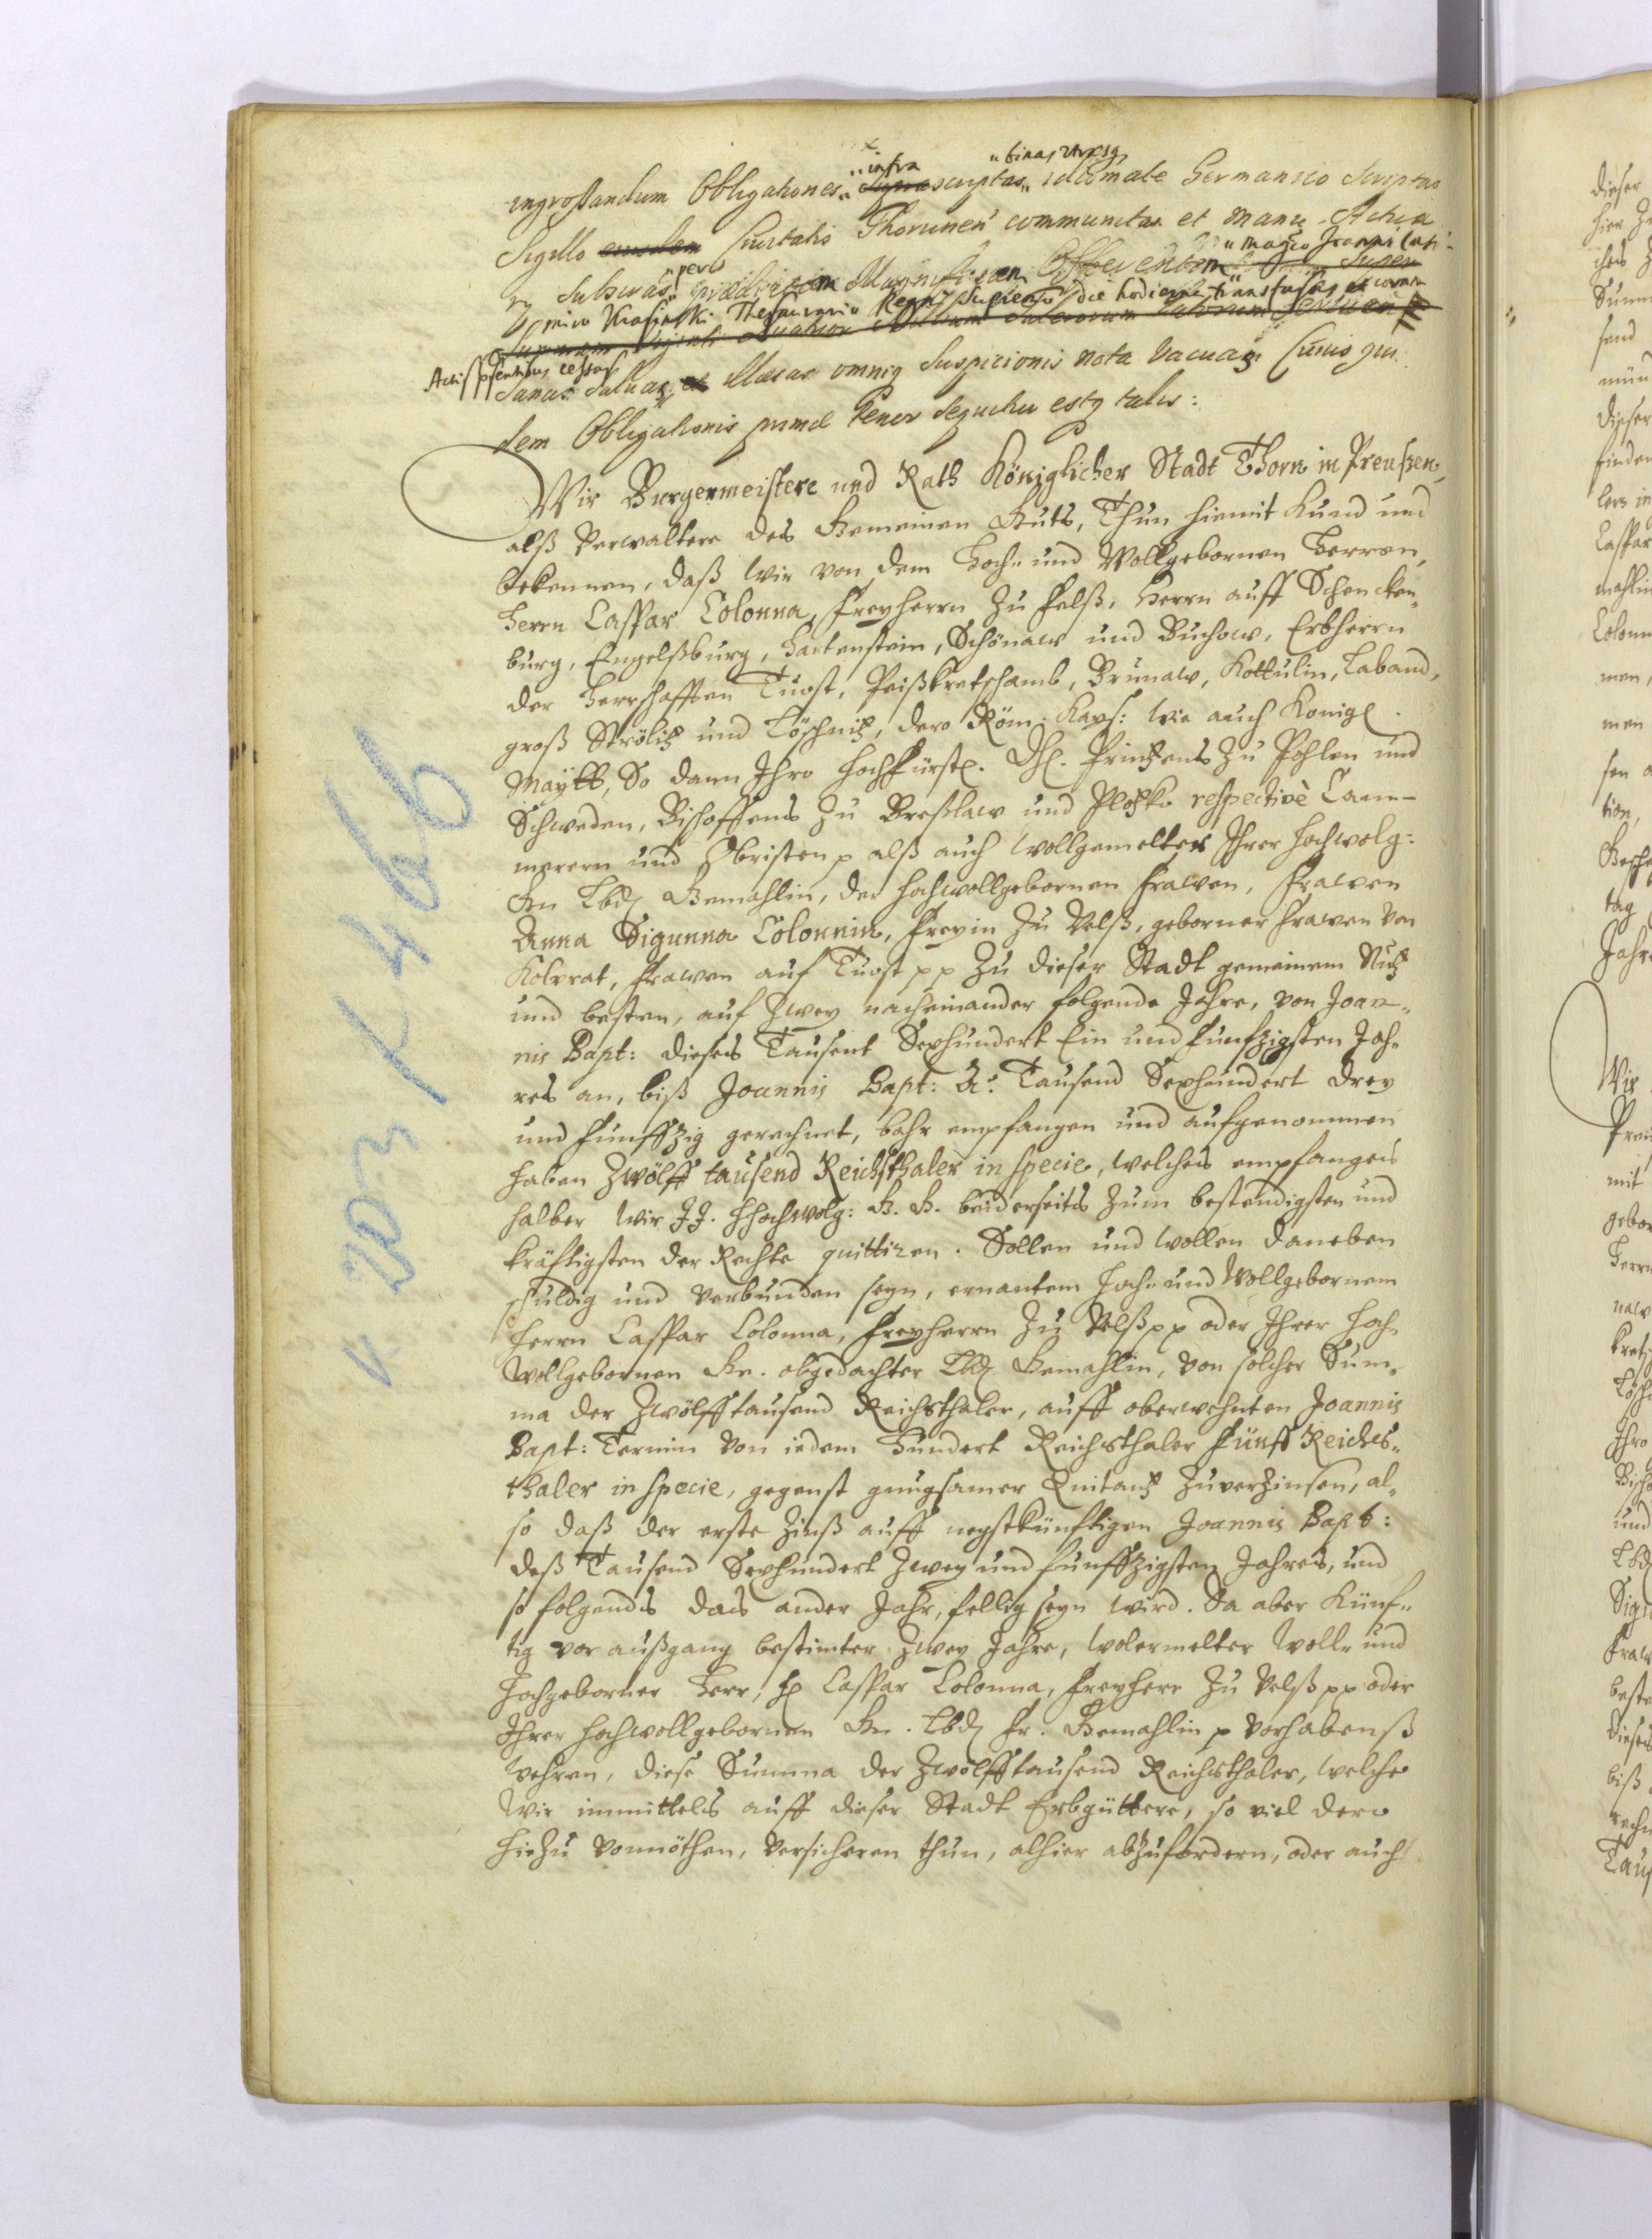 infra binas utrasq
ingrossandum Obligationes Suprascriptas idiomate Germanico Scriptas
Sigillo eiusdem Civitatis Thorunen communitas et manu
per Magco Joanni
Subscrip Magnificum Obvenientem Super
Krasinski Thesaurario Regni die hodierna transfusas et coram
Summam Viginti Quatuor
Actis pntibus cessas
Sanas Salvas et Illæsas omniq Suspicionis nota vacuas Cuius qui
dem Obligationis primæ tenor sequitur estq talis:
Wir Burgermeistere und Rath Königlicher Stadt Thorn in Preußen,
alß Verwaltere des Gemeinen Guts, Thun hiemit kund und
bekennen, daß wir von dem Hoch- und Wollgebornen Herren,
Herrn Caspar Colonna, Freyherrn zu Felß, Herrn auff Schencken-
burg, Engelßburg, Hartenstein, Schönaw und Buchow, Erbherrn
der Herrschafften Tuost, Peißkretschamb, Brunaw, Kottulin, Laband,
groß Strölitz und Töschnitz, dero Röm: Kays: wie auch Königl.
Maytt, So dann Ihro hochfürstl. Dhl. Printzens zu Pohlen und
Schweden, Bischoffens zu Breßlaw und Plotzko respectivè Cam-
merern und Obristen p alß auch wollgemelter Ihrer hochwolg:
Gn Lbd Gemahlin, der hochwollgebornen Frawen, Frawen
Anna Sigunna Colonnin, Freyin zu Velß, geborner Frawen von
Kolvrat, Frawen auf Tuost pp zu dieser Stadt gemeinem Nutz
und besten, auf zwey nacheinander folgende Jahre, von Joan-
nis Bapt: dieses Tausent Sexhundert Ein und funfzigsten Jah-
res an, biß Joannis Bapt: Ao. Tausend Sexhundert drey
und funffzig gerechnet, bahr empfangen und aufgenommen
haben Zwölff tausend Reichsthaler in specie, welches empfanges
halber wir JJ. HHochwolg: G. G. beiderseits zum bestendigsten und
kräftigsten der Rechte quittiren. Sollen und wollen daneben
schuldig und verbunden seyn, ernantem Hoch- und Wollgebornem
Herrn Caspar Colonna, Freyherrn zu Velß pp oder Ihrer Hoch
Wollgebornen Gn. obgedachter Lbd Gemahlin, von solcher Sum-
ma der Zwölfftausend Reichsthaler, auff oberwehnten Joannis
Bapt: Termin von iedem Hundert Reichsthaler fünff Reichs-
thaler in specie, gegenst gnugsamer Quitantz zuverzinsen, al-
so daß der erste Zinß auff negstkünftigen Joannis Bapt:
deß Tausend Sexhundert zwey und funffzigsten Jahres, und
so folgends das ander Jahr, fellig seyn wird. Da aber künf-
tig vor außgang bestimter zwey Jahre, wolermelter Woll- und
Hochgeborner Herr, H Caspar Colonna, Freyherr zu Velß pp oder
Ihrer hochwollgebornen Gn. Lbd Fr. Gemahlin p vorhabenß
wehren, diese Summa der Zwölfftausend Reichsthaler, welche
wir immittels auff dieser Stadt Erbgüttere, so viel dero
hiezu vonnöthen, versichern thun, alhier abzufordern, oder auch